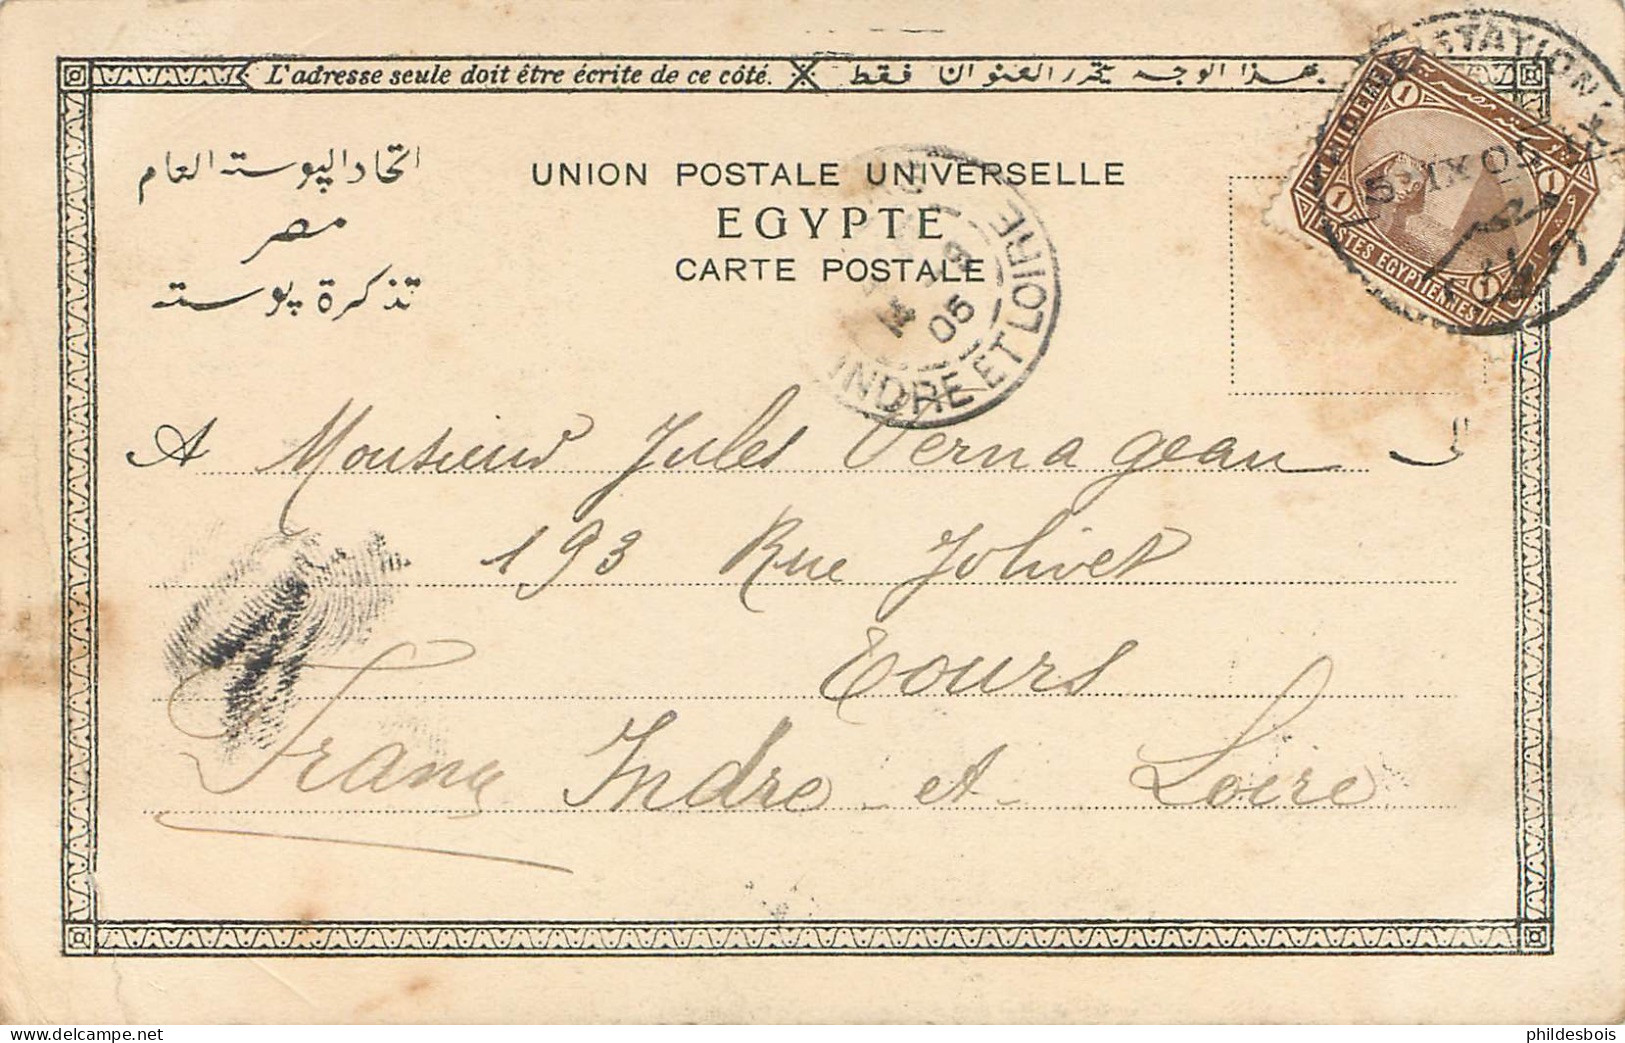 L'adresse seule doit être écrite de ce côté. هذا الوجه يحرر العنوان فقط.
اتحاد البوسته العام
مصر
تذكرة بوسته
UNION POSTALE UNIVERSELLE
EGYPTE
CARTE POSTALE
STATION
5 IX 05
1 1 1
POSTES EGYPTIENNES
05
INDRE ET LOIRE
A Monsieur Jules Vernageau
193 Rue Jolivet
Tours
France Indre et Loire
phildesbois